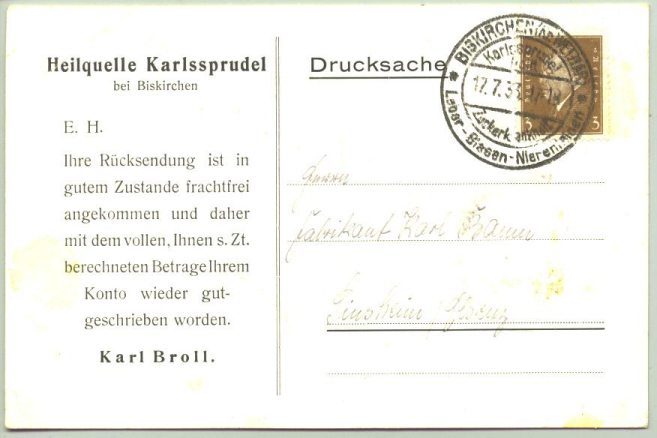 Heilquelle Karlssprudel
bei Biskirchen
E. H.
Ihre Rücksendung ist in
gutem Zustande frachtfrei
angekommen und daher
mit dem vollen, Ihnen s. Zt.
berechneten Betrage Ihrem
Konto wieder gut-
geschrieben worden.
Karl Broll.
Drucksache
BISKIRCHEN
Karlssprudel
17.7.33
Zuckerk
Leber-Blasen-Nieren
3 3
Herrn
Fabrikant Karl
Sinsheim